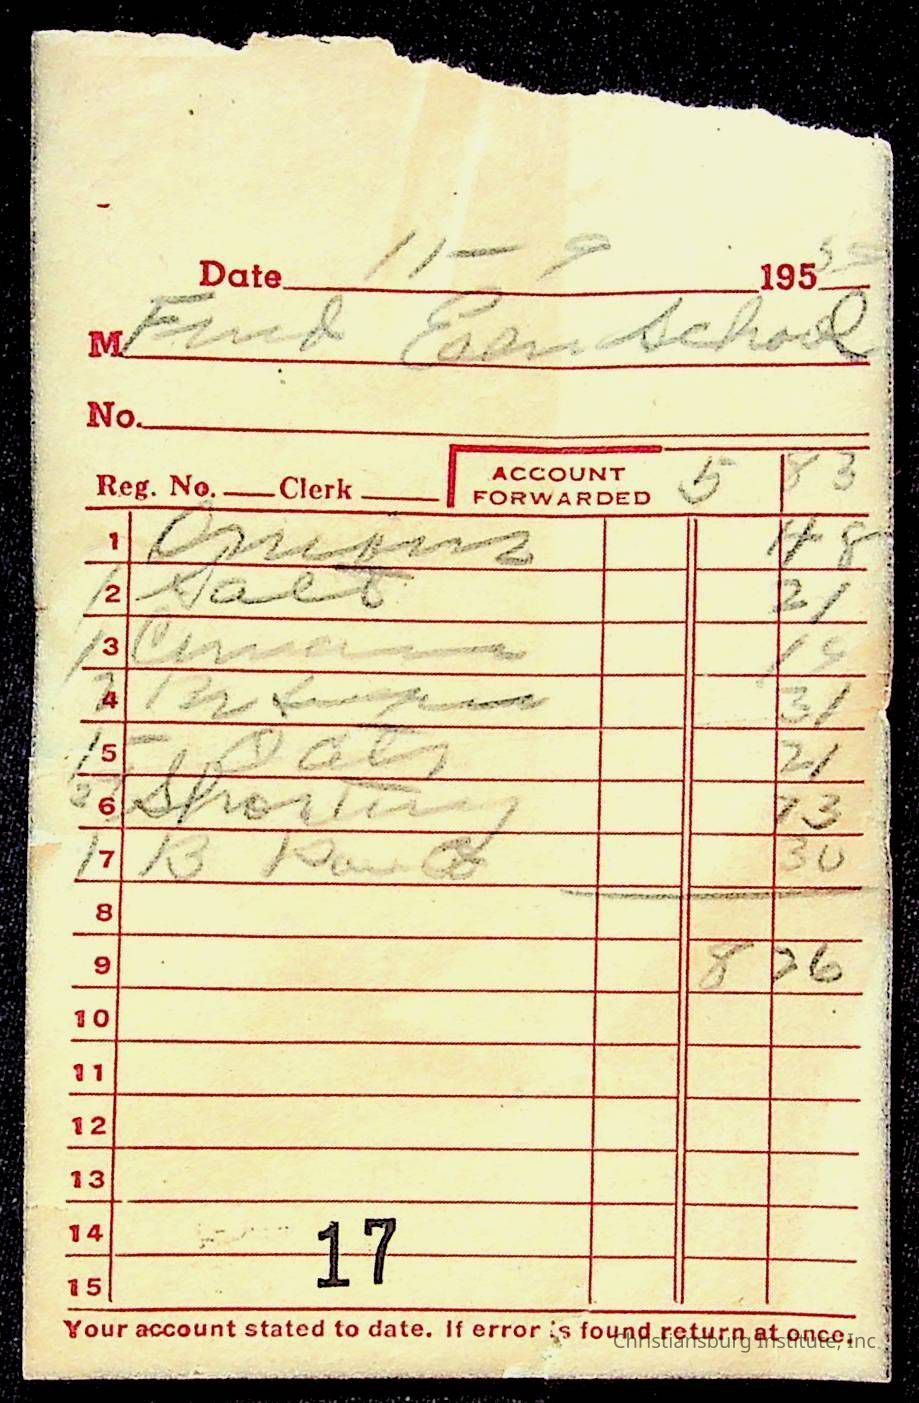 Date 11-9 195
M Fried Elem School
No.
Reg. No. Clerk ACCOUNT FORWARDED 5 83
1 Onions 48
1 2 Salt 21
1 3 19
4 31
1 5 Oats 21
6 73
1 7 B Powd 30
8
9 8 76
10
11
12
13
14
15
17
Your account stated to date. If error is found return at once.
Christiansburg Institute, Inc.